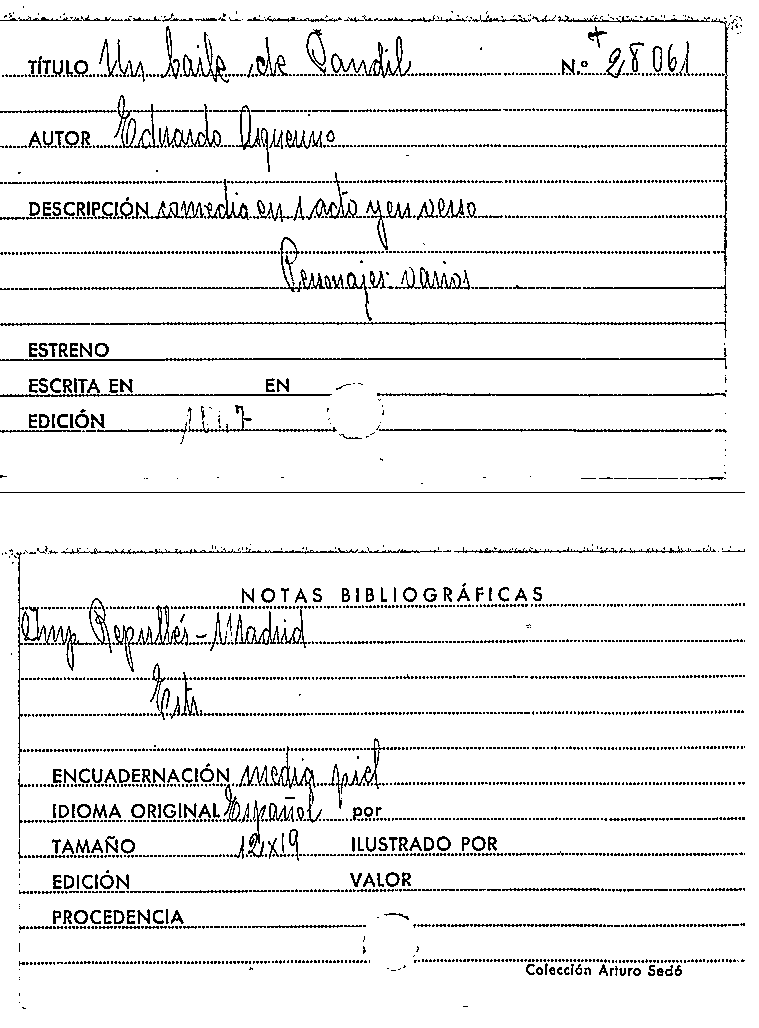 TÍTULO Un baile de Candil N.º + 28061
AUTOR Eduardo Asquerino
DESCRIPCIÓN comedia en 1 acto y en verso
Personajes: varios
ESTRENO
ESCRITA EN EN
EDICIÓN
NOTAS BIBLIOGRÁFICAS
Imp Repullés - Madrid
ENCUADERNACIÓN media piel
IDIOMA ORIGINAL Español por
TAMAÑO 12x19 ILUSTRADO POR
EDICIÓN VALOR
PROCEDENCIA
Colección Arturo Sedó